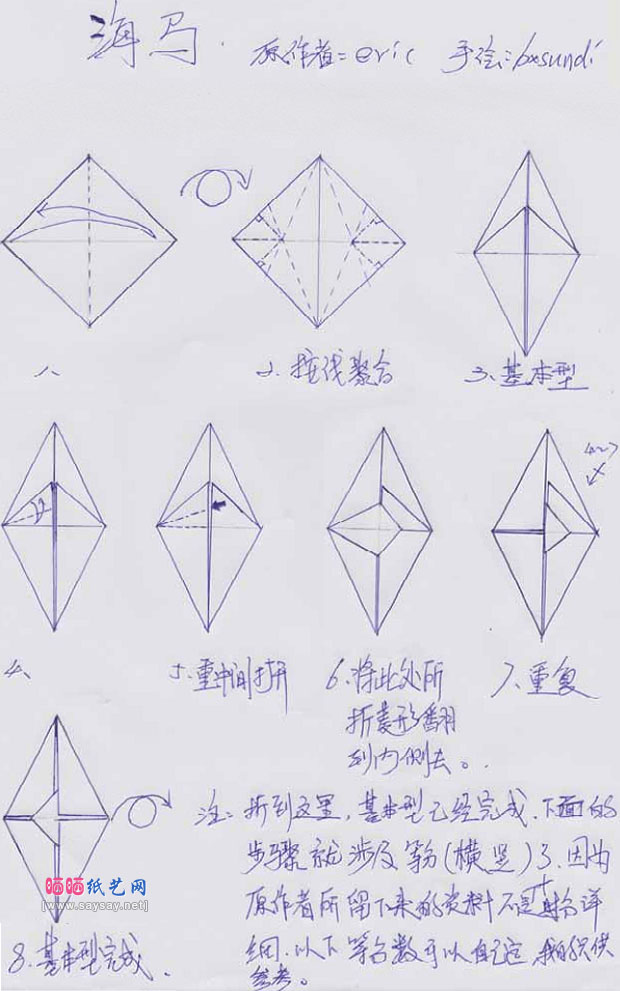 海马. 原作者=eric 手绘:bxsundi
1、
2、按线聚合
3、基本型
4、
5、重中间打开
6、将此处所
折菱形翻
到内侧去。
4~7
7、重复
注: 折到这里, 基本型已经完成. 下面的
步骤就涉及等分(横竖)了. 因为
原作者所留下来的资料不是十分详
细. 以下等分数可以自己定, 我的只供
参考。
晒晒纸艺网
[www.saysay.net]
8.基本型完成.